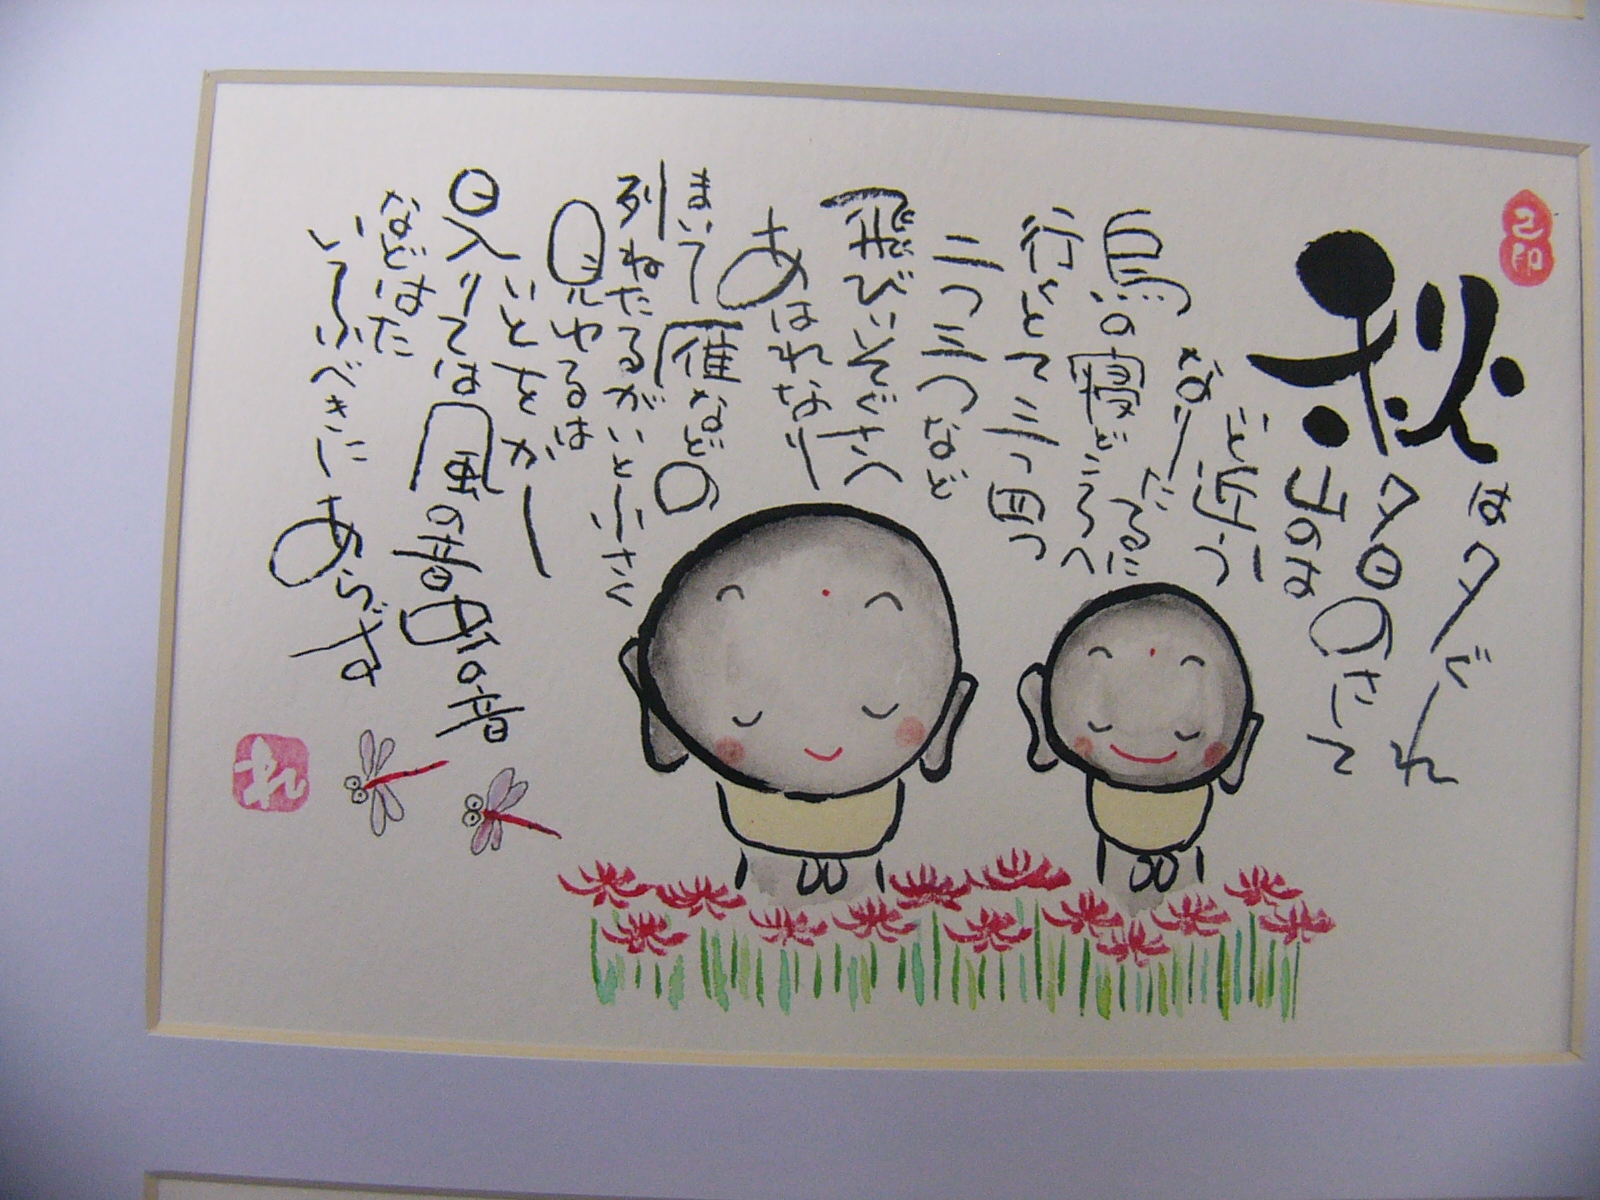 秋は夕ぐれ
夕日のさして
山のは
いと近う
なりたるに
烏の寝どころへ
行くとて三つ四つ
二つ三つなど
飛びいそぐさへ
あはれなり
まいて雁などの
列ねたるがいと小さく
見ゆるは
いとをかし
日入りては風の音虫の音
などはた
いふべきにあらず